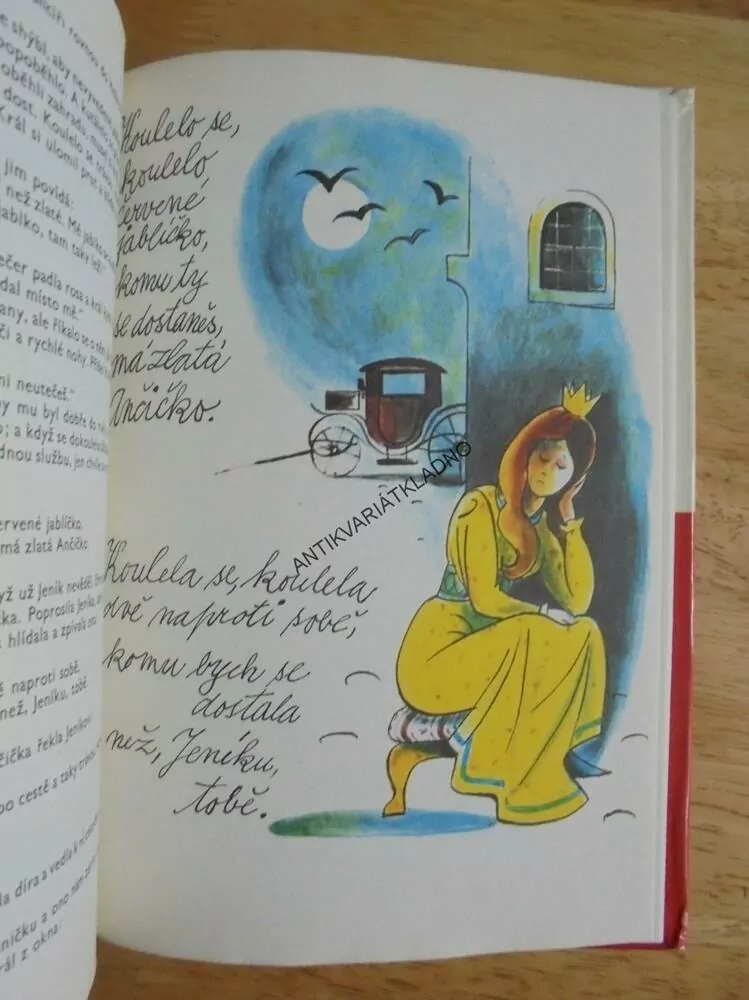 rovnou do
se shýbl, aby
popoběhlo. A
oběhli zahradu,
dost. Koulelo se,
Král si ulomil prut a
jim povídá:
než zlaté. Mé
jablko, tam taky lež."
večer padla rosa a král
dal místo mě."
any, ale říkalo se o něm,
čí a rychlé nohy.
mi neutečeš."
by mu byl dobře do
o; a když se dokoulelo
dnou službu, jen chvíle
ervené jablíčko,
má zlatá Ančičko
yž už Jeník nevěděl,
čka. Poprosila Jeníka,
hlídala a zpívala
ě naproti sobě,
než, Jeníku, tobě
čička řekla Jeníkovi
po cestě a taky
la díra a vedla k
ničku a ono
rál z okna:
Koulelo se,
koulelo
červené
jablíčko,
komu ty
se dostaneš,
má zlatá
Ančičko.
Koulela se, koulela
dvě naproti sobě,
komu bych se
dostala
než, Jeníku,
tobě.
ANTIKVARIÁTKLADNO